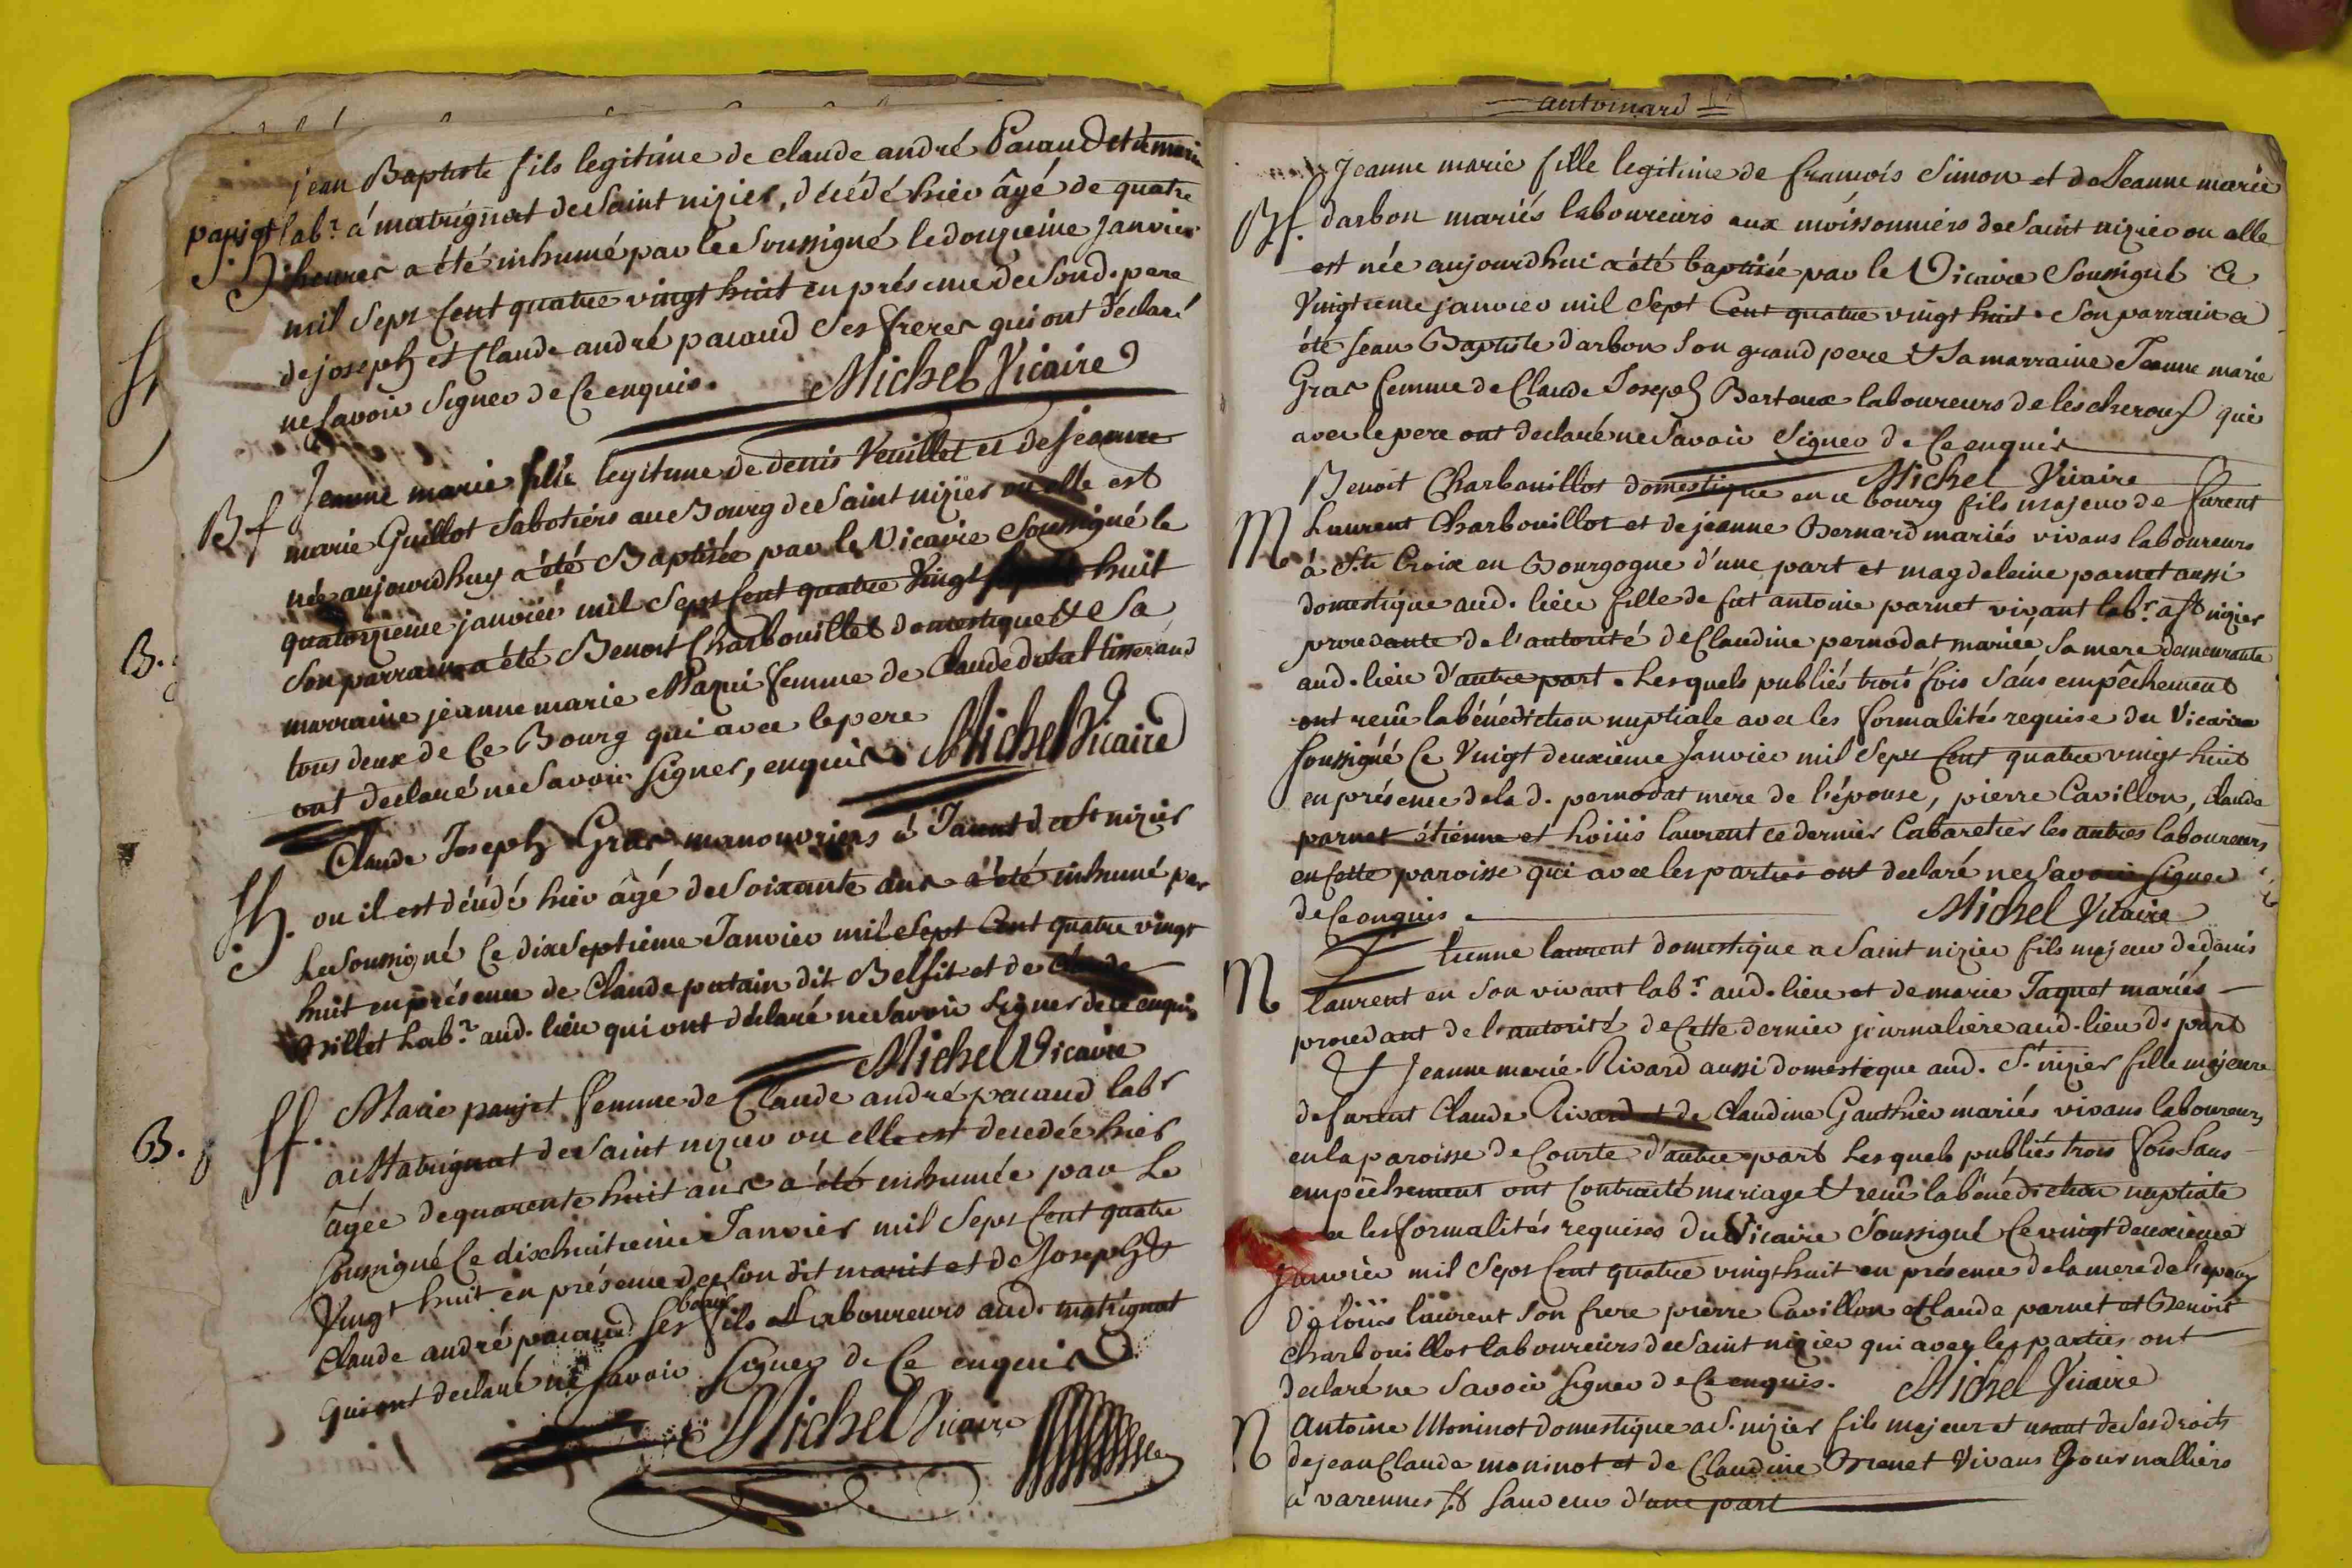 jean Baptiste fils legitime de claude andré Pacaud et de marie
papigt lab.r á matrignat de Saint nizier, décédé hier âgé de quatre
heures a été inhumé par le Soussigné le douzieme janvier
mil Sept Cent quatre vingt huit en présence de Sond. pere
de joseph et Claude andré pacaud Ses freres qui ont déclaré
ne Savoir Signer de Ce enquis.
Michel Vicaire
Bf
Jeanne marie fille legitime de denis Veuillet et de Jeanne
marie Guillot Sabotiers au Bourg de Saint nizier ou elle est
née aujourdhuy a été Baptisée par le Vicaire Soussigné le
quatorzieme janvier mil Sept Cent quatre Vingt huit
Son parrain a été Benoit Charbouillet domestique & Sa
marraine jeanne marie Maqui femme de Claude dutal tisserand
tous deux de Ce Bourg qui avec le pere
ont declaré ne Savoir Signer, enquis
Michel Vicaire
Claude Joseph Gras manouvriers á Jannt de St nizier
Sh. ou il est décédé hier âgé de Soixante ans a été inhumé par
Le Soussigné Ce dix Septieme Janvier mil Sept Cent quatre vingt
huit en présence de Claude putain dit Belfit et de Claude
Billet Lab.r aud. lieu qui ont déclaré ne Savoir Signer de Ce enquis
Michel Vicaire
Sf. Marie panjet femme de Claude andré pacaud labr
a Matrignat de Saint nizier ou elle est decedée hier
âgée de quarente huit ans a été inhumée par Le
Soussigné Ce dix huitieme Janvier mil Sept Cent quatre
Vingt huit en présence de Son dit marit et de Joseph &
beaux
Claude andré pacaud Ses fils Laboureurs aud. matrignat
qui ont declaré ne Savoir Signer de Ce enquis
Michel Vicaire
B.
B.
Jeanne marie fille legitime de francois Simon et de Jeanne marie
Bf. darbon mariés laboureurs aux moissonniers de Saint nizier ou elle
est née aujourdhui a été baptisée par le Vicaire Soussigné Ce
Vingtieme janvier mil Sept Cent quatre vingt huit. Son parrain a
été Jean Baptiste darbon Son grand pere & Sa marraine Jeanne marie
Gras femme de Claude Joseph Bertaux laboureurs de lescheroux qui
avec le pere ont declaré ne Savoir Signer de Ce enquis
Michel Vicaire
Benoit Charbouillot domestique en ce bourg fils majeur de furent
M Laurent Charbouillot et de jeanne Bernard mariés vivans laboureurs
á Ste Croix en Bourgogne d'une part et magdeleine parnet aussi
domestique aud. lieu fille de fut antoine parnet vivant lab.r a St nizier
procedante de l'autorité de Claudine pernodat mariée Sa mere demeurante
aud. lieu d'autre part. Lesquels publiés trois fois Sans empêchement
ont reçû la bénédiction nuptiale avec les formalités requise du Vicaire
Soussigné Ce Vingt deuxieme Janvier mil Sept Cent quatre vingt huit
en présence de la d. pernodat mere de l'épouse, pierre Cavillon, Claude
parnet étienne et Loüis laurent ce dernier Cabaretier les autres laboureurs
en Cette paroisse qui avec les parties ont declaré ne Savoir Signer
de Ce enquis
Michel Vicaire
M Etienne laurent domestique a Saint nizier fils majeur de denis
laurent en Son vivant lab.r aud. lieu et de marie Jaquet mariés
procedant de l'autorité de Cette dernier journaliere aud. lieu d. part
& Jeanne marie Rivard aussi domestique aud. St nizier fille majeure
de furent Claude Rivard et de Claudine Gauthier mariés vivans laboureurs
en la paroisse de Courte d'autre part Lesquels publiés trois fois Sans
empêchement ont Contracté mariage & reçû la bénédiction nuptiale
les formalités requises du Vicaire Soussigné Ce vingt deuxieme
Janvier mil Sept Cent quatre vingt huit en présence de la mere de l'epoux
de loüis laurent Son frere pierre Cavillon et Claude parnet et Benoit
Charbouillot laboureurs de Saint nizier qui avec les parties ont
declaré ne Savoir Signer de Ce enquis.
Michel Vicaire
M Antoine Moninot domestique a S. nizier fils majeur et usant de Ses droits
de jean Claude moninot et de Claudine Brenet Vivans Journalliers
á varennes St Sauveur d'une part